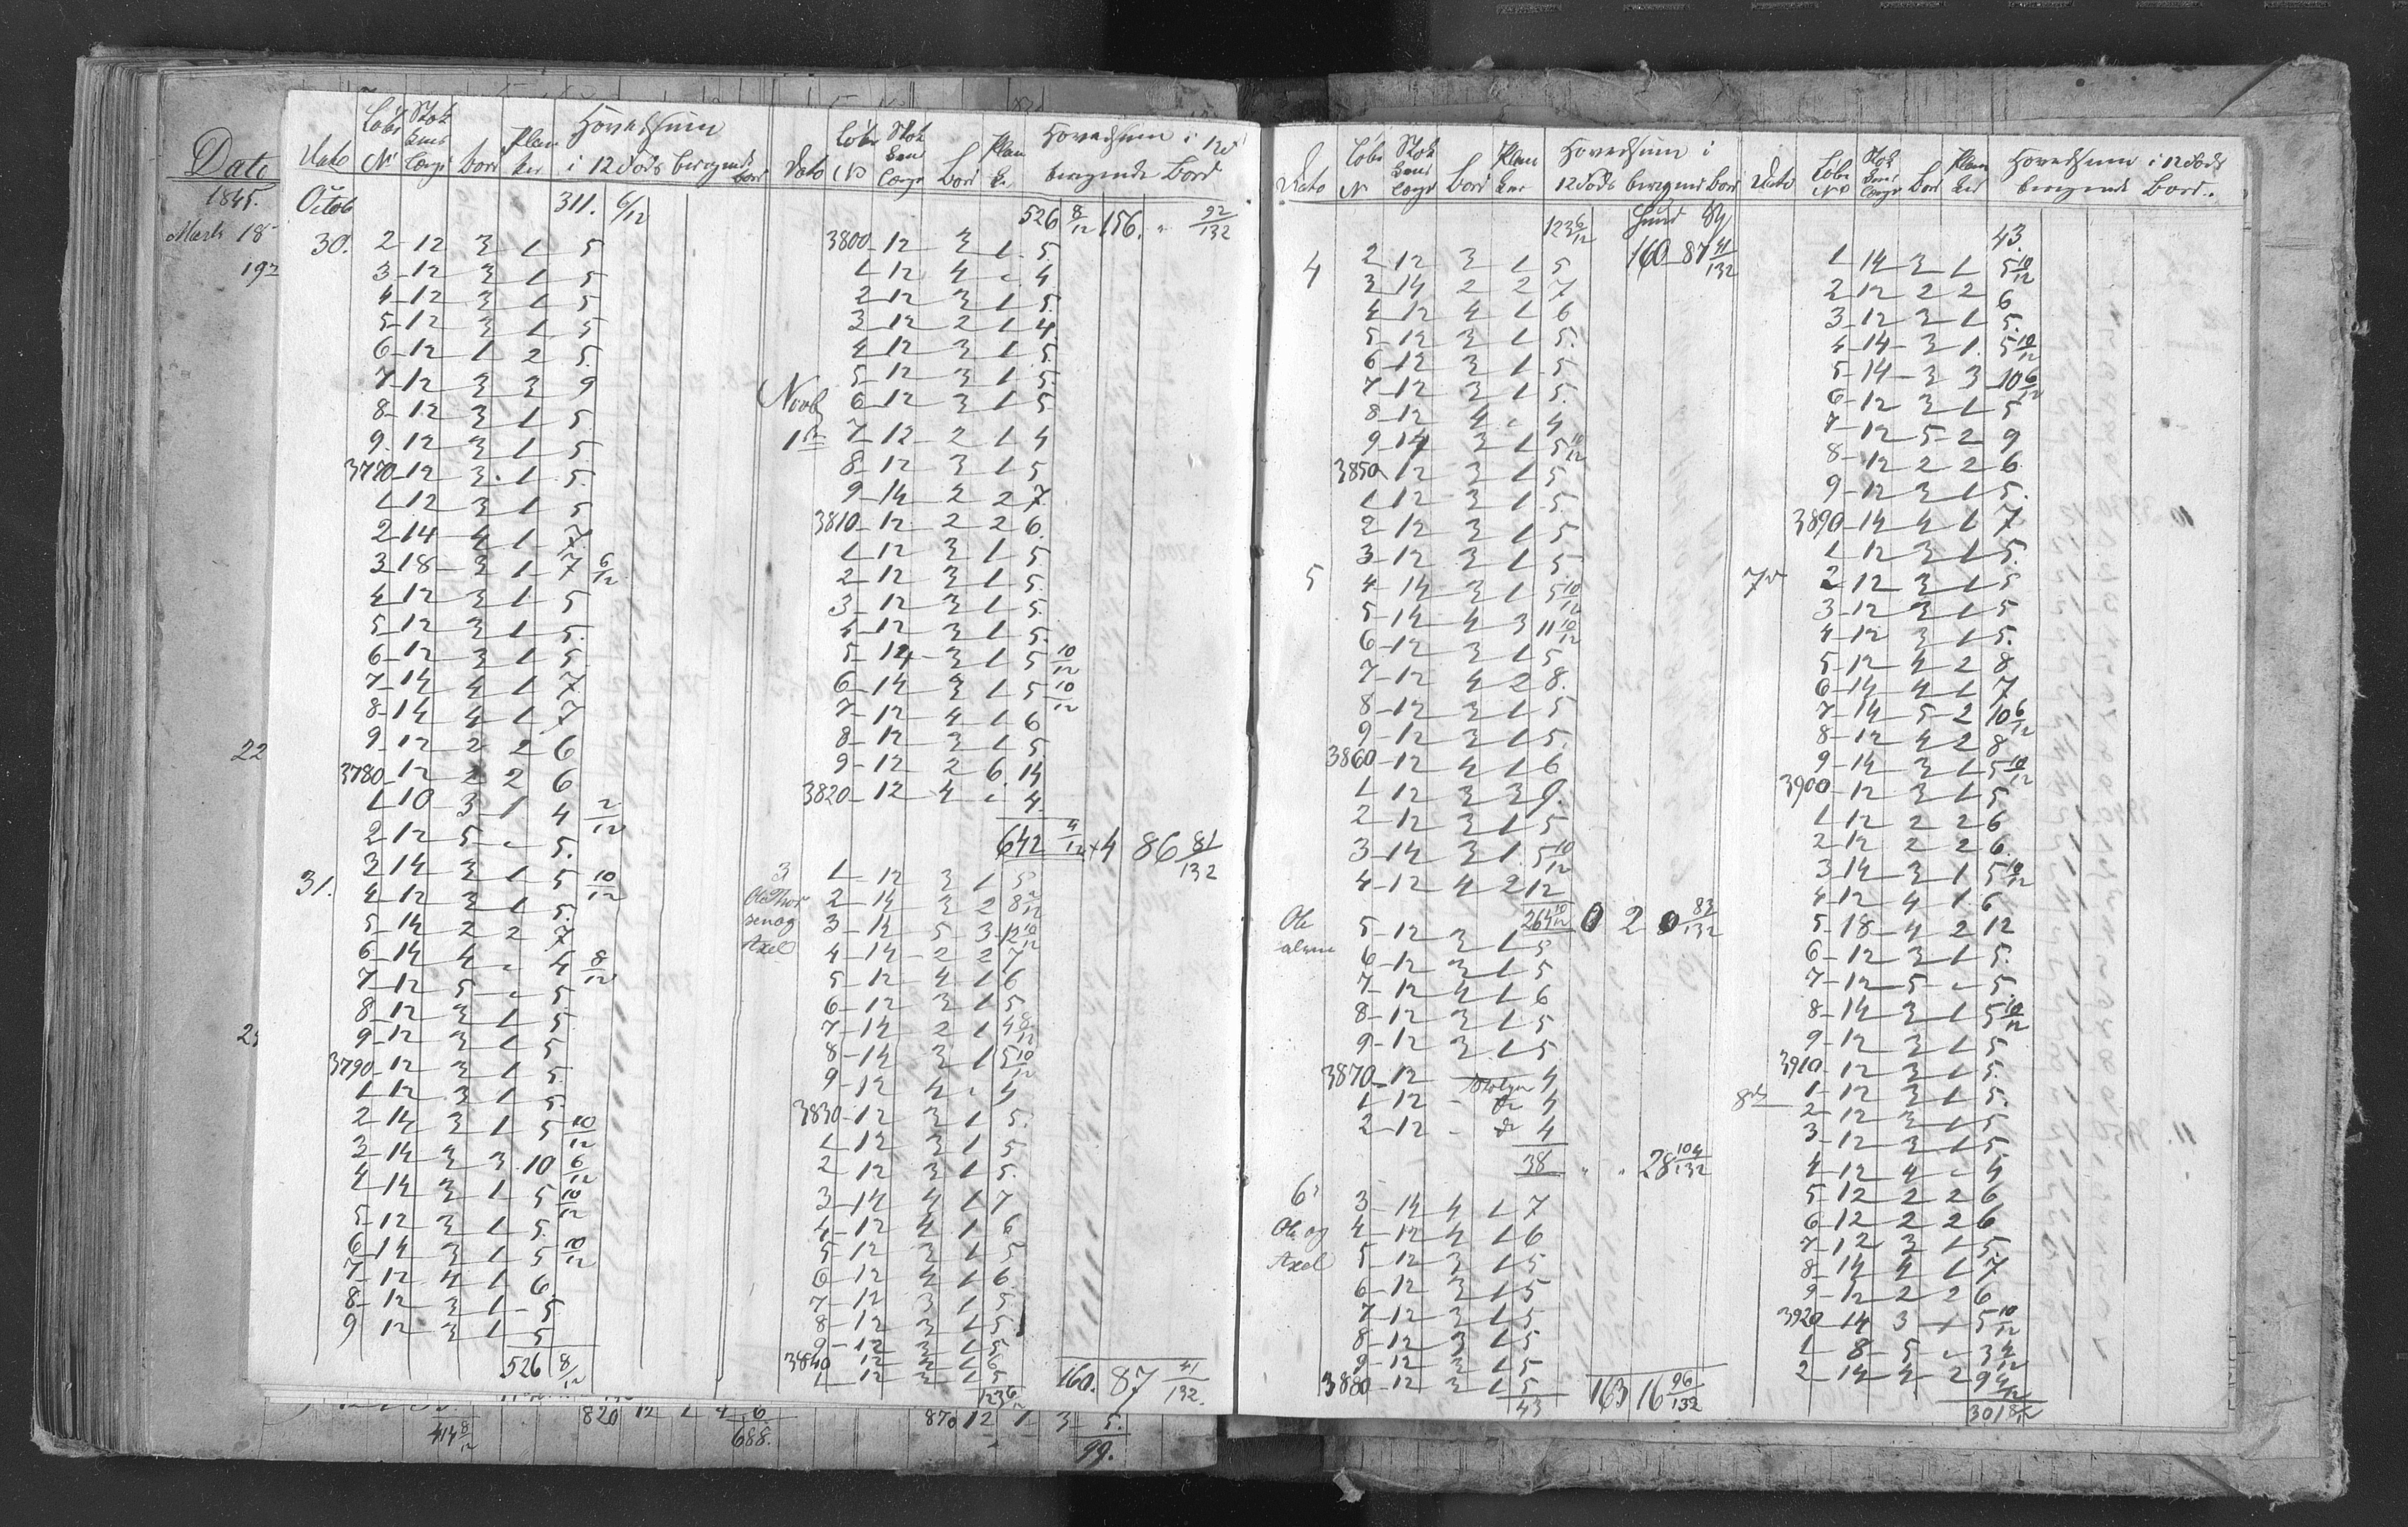 Date
1845.
Marts 18
19
22
Dato Løbe No Stok kens Længd Bord Plan ker Hovedsum i 12 Fods beregnede Bord
Octob 311. 6/12
30. 2 12 3 1 5
3 12 3 1 5
4 12 3 1 5
5 12 3 1 5
6 12 1 2 5.
7 12 3 3 9
8 12 3 1 5
9 12 3 1 5.
3770 12 3 1 5.
1 12 3 1 5
2 14 4 1 7
3 18 3 1 7 6/12
4 12 3 1 5
5 12 3 1 5.
6 12 3 1 5
7 14 4 1 7
8 14 4 1 7
9 12 2 2 6
3780 12 2 2 6
1 10 3 1 4 2/12
2 12 5 " 5.
3 14 3 1 5 10/12
31. 4 12 3 1 5.
5 14 2 2 7
6 14 4 " 4 8/12
7 12 5 " 5
8 12 3 1 5
9 12 3 1 5
3790 12 3 1 5.
1 12 3 1 5
2 14 3 1 5 10/12
3 14 3 3 10 6/12
4 14 3 1 5 10/12
5 12 3 1 5.
6 14 3 1 5 10/12
7 12 4 1 6
8 12 3 1 5
9 12 3 1 5
526 8/12
Dato Løbe No Stok kens Længd Bord Plan ker Hovedsum i 12 beregnede Bord
526 8/12 156. " 92/132
3800 12 3 1 5.
1 12 4 " 4
2 12 3 1 5.
3 12 2 1 4
4 12 3 1 5
5 12 3 1 5.
Novb 6 12 3 1 5
1 7 12 2 1 4
8 12 3 1 5
9 14 2 2 7
3810 12 2 2 6.
1 12 3 1 5
2 12 3 1 5.
3 12 3 1 5.
4 12 3 1 5.
5 14 3 1 5 10/12
6 14 3 1 5 10/12
7 12 4 1 6
8 12 3 1 5
9 12 2 6 14
3820 12 4 " 4
642 4/12 4 86 81/132
3 1 12 3 1 5
Ole Thor 2 14 3 2 8 2/12
sen og 3 14 5 3 12 10/12
Axel 4 14 2 2 7
5 12 4 1 6
6 12 3 1 5
7 14 2 1 4 8/12
8 14 3 1 5 10/12
9 12 4 " 4
3830 12 3 1 5.
1 12 3 1 5
2 12 3 1 5.
3 14 4 1 7
4 12 4 1 6
5 12 3 1 5
6 12 4 1 6
7 12 3 1 5
8 12 3 1 5
9 12 3 1 5
3840 12 4 1 6
1 12 3 1 5
123 6/12 160. 87 41/132.
Dato Løbe No Stok kens Længd Bord Plan ker Hovedsum i 12 Fods beregnede Bord
123 6/12 160 87 41/132
4 2 12 3 1 5
3 14 2 2 7
4 12 4 1 6
5 12 3 1 5.
6 12 3 1 5
7 12 3 1 5.
8 12 4 " 4
9 14 3 1 5 10/12
3850 12 3 1 5
1 12 3 1 5
2 12 3 1 5
3 12 3 1 5
5 4 14 3 1 5 10/12
5 14 4 3 11 10/12
6 12 3 1 5
7 12 4 2 8.
8 12 3 1 5
9 12 3 1 5.
3860 12 4 1 6
1 12 3 3 9.
2 12 3 1 5
3 14 3 1 5 10/12
4 12 4 2 12
264 10/12 0 2 0 83/132
Ole 5 12 3 1 5
alene 6 12 3 1 5
7 12 4 1 6
8 12 3 1 5
9 12 3 1 5
3870 12 4
1 12 4
2 12 4
38 " " 28 104/132
6 3 14 4 1 7
Ole og 4 12 4 1 6
Axel 5 12 3 1 5
6 12 3 1 5
7 12 3 1 5
8 12 3 1 5
9 12 3 1 5
3880 12 3 1 5
43 163 16 96/132
Dato Løbe No Stok kens Længd Bord Plan ker Hovedsum i 12 Fods beregnede Bord..
43.
1 14 3 1 5 10/12
2 12 2 2 6
3 12 3 1 5.
4 14 3 1. 5 10/12
5 14 3 3 10 6/12
6 12 3 1 5
7 12 5 2 9
8 12 2 2 6
9 12 3 1 5.
3890 14 4 1 7
1 12 3 1 5.
7 2 12 3 1 5
3 12 3 1 5
4 12 3 1 5.
5 12 4 2 8
6 14 4 1 7
7 14 5 2 10 6/12
8 12 4 2 8
9 14 3 1 5 10/12
3900 12 3 1 5
1 12 2 2 6
2 12 2 2 6
3 14 3 1 5 10/12
4 12 4 1 6
5 18 4 2 12
6 12 3 1 5.
7 12 5 " 5.
8 14 3 1 5 10/12
9 12 3 1 5
3910 12 3 1 5.
1 12 3 1 5.
8 2 12 3 1 5
3 12 3 1 5
4 12 4 " 4
5 12 2 2 6
6 12 2 2 6
7 12 3 1 5
8 14 4 1 7
9 12 2 2 6
3920 14 3 1 5 10/12
1 8 5 " 3 4/12
2 14 4 2 9 4/12
301 8/12
414 8/12
820 12 2 4 6.
688.
870 12 1 3 5.
99.